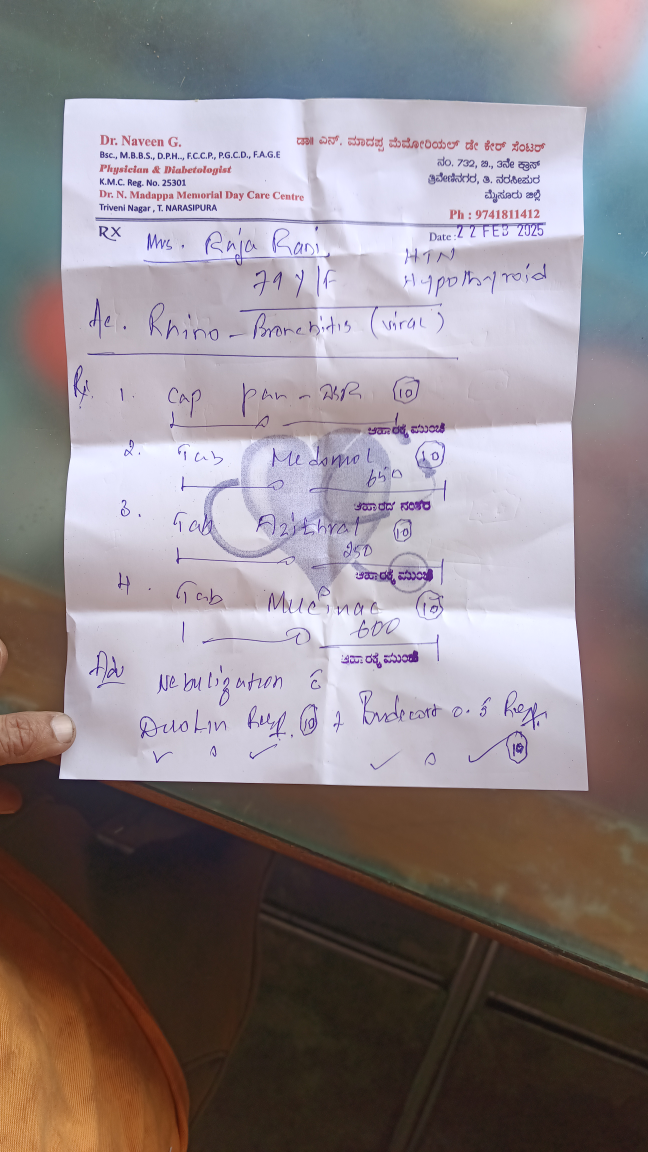 Dr. Naveen G.
Bsc., M.B.B.S., D.P.H.., F.C.C.P., P.G.C.D., F.A.G.E
Physician & Diabetologist
K.M.C. Reg. No. 25301
Dr. N. Madappa Memorial Day Care Centre
Triveni Nagar , T. NARASIPURA
ಡಾ॥ ಎನ್. ಮಾದಪ್ಪ ಮೆಮೋರಿಯಲ್ ಡೇ ಕೇರ್ ಸೆಂಟರ್
ನಂ. 732, ಬಿ., 3ನೇ ಕ್ರಾಸ್
ತ್ರಿವೇಣಿನಗರ, ತಿ. ನರಸೀಪುರ
ಮೈಸೂರು ಜಿಲ್ಲೆ
Ph : 9741811412
RX
Date : 22 FEB 2025
Mrs. Raja Rani
HTN
71 Y/F
Hypothyroid
Ac. Rhino - Bronchitis (viral)
Rx
1. Cap Pan - DSR 10
ಆಹಾರಕ್ಕೆ ಮುಂಚೆ
2. Tab Medomol 10
650
ಆಹಾರದ ನಂತರ
3. Tab Azithral 10
250
ಆಹಾರಕ್ಕೆ ಮುಂಚೆ
4. Tab Mucinac 10
600
ಆಹಾರಕ್ಕೆ ಮುಂಚೆ
Adv Nebulization c̄
Duolin Resp. 10 + Budecort 0.5 Resp.
✓ 0 ✓ ✓ 0 ✓ 10